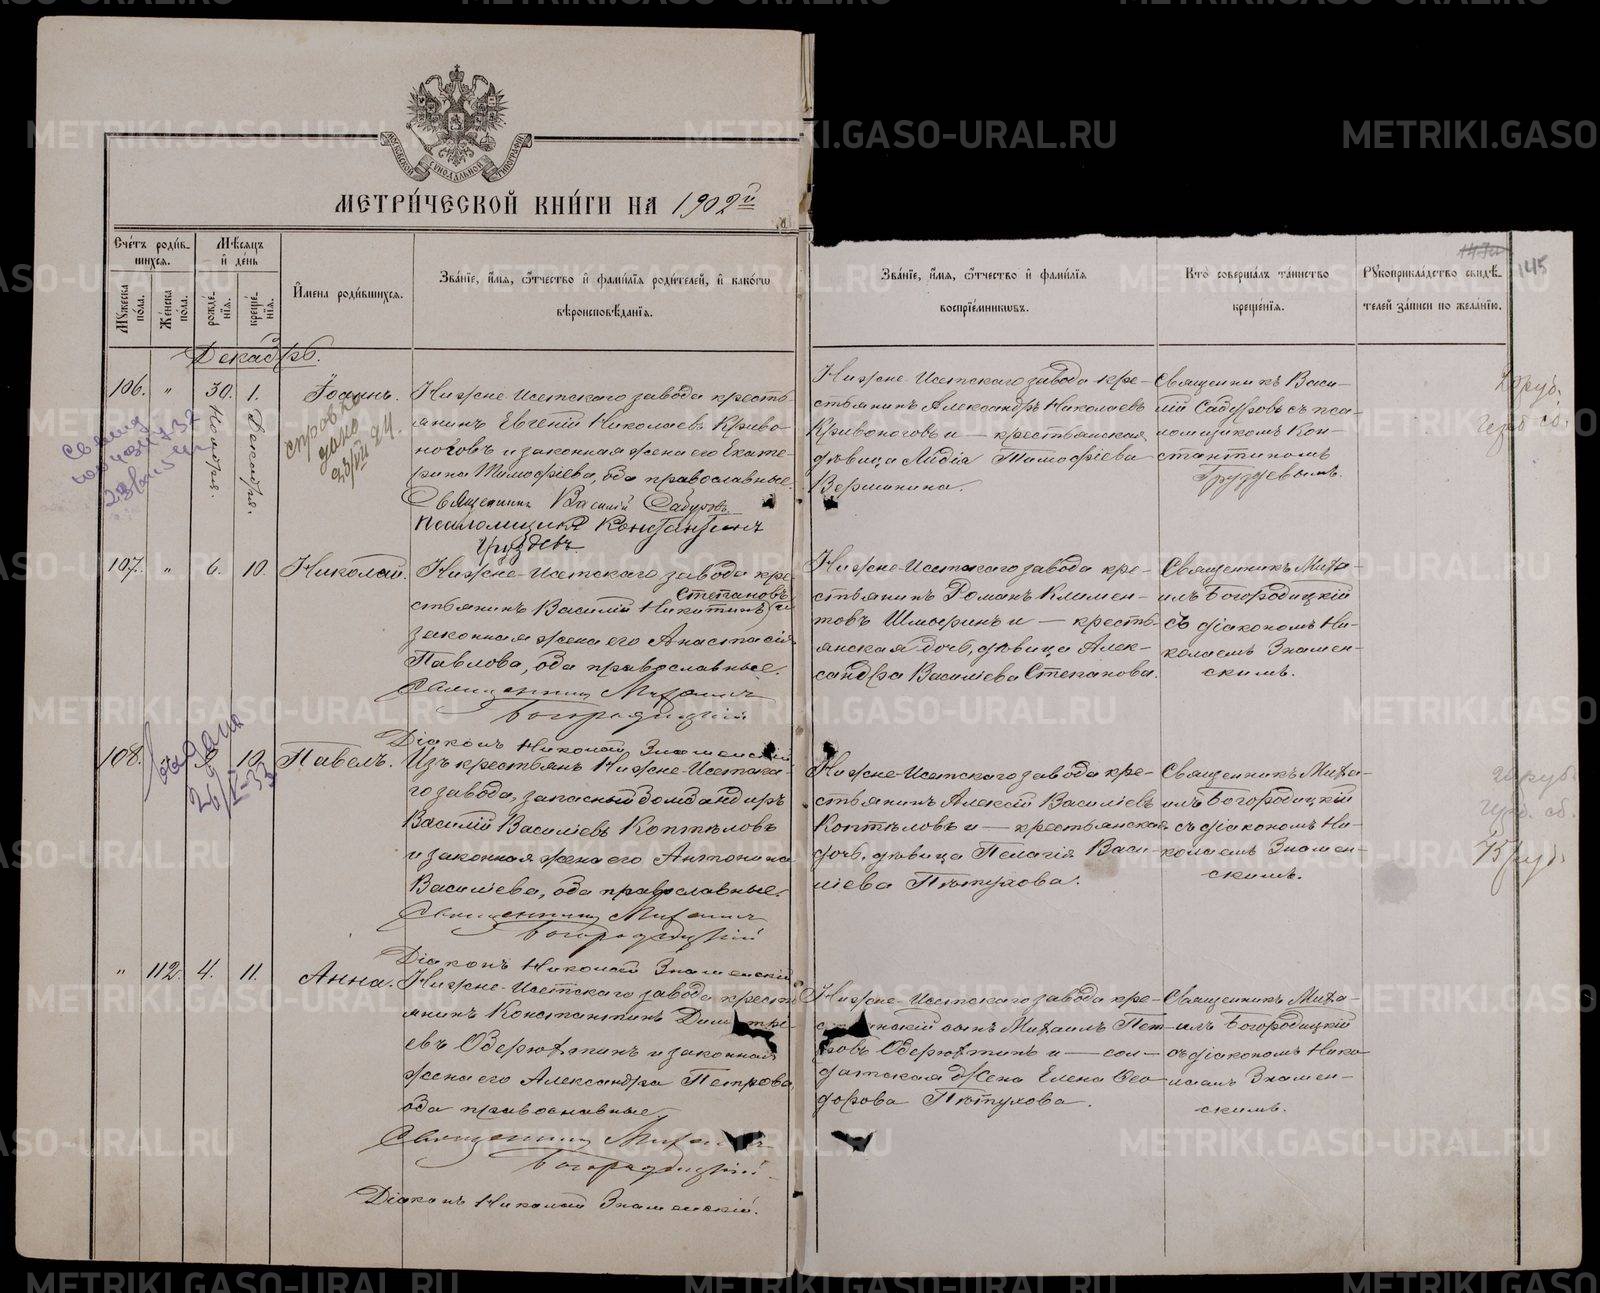 МОСКОВСКОЙ СѴНОДАЛЬНОЙ ТИПОГРАФІИ
МЕТРИ́ЧЕСКОЙ КНИ́ГИ НА 1902 й
Сче́тъ роди́в-
шихся.
Мѣ́сяцъ
и҆ де́нь
Мꙋ́жеска
по́ла.
Же́нска
по́ла.
рожде́-
нїя.
креще́-
нїя.
И҆мена̀ роди́вшихся.
Зва́нїе, и҆́мя, ѻ҆́тчество и҆ фами́лїя роди́телей, и҆ како́гѡ
вѣроисповѣ́данїя.
Зва́нїе, и҆́мя, ѻ҆́тчество и҆ фами́лїя
воспрїе́мниковъ.
Кто̀ соверша́лъ та́инство
креще́нїя.
Рꙋкоприкла́дство свидѣ́-
телей за́писи по жела́нїю.
145
Декабрь.
106. " 30. Ноября. 1. Декабря. Іоаннъ.
Нижне-Исетскаго завода кресть-
янинъ Евгеній Николаевъ Криво-
ноговъ и законная жена его Екате-
рина Тимофѣева, оба православные.
Священникъ Василій Сабуровъ
Псаломщикъ Константинъ
Груздевъ.
Нижне-Исетскаго завода кре-
стьянинъ Александръ Николаевъ
Кривоноговъ и — крестьянская
дѣвица Лидія Тимофіева
Вершинина.
Священникъ Васи-
лій Сабуровъ съ пса-
ломщикомъ Кон-
стантиномъ
Груздевымъ.
107. " 6. 10. Николай.
Нижне-Исетскаго завода кре-
стьянинъ Василій Никитинъ Степановъ и
законная жена его Анастасія
Павлова, оба православные.
Священникъ Михаилъ
Богородицкій
Діаконъ Николай Знаменскій
Нижне-Исетскаго завода кре-
стьянинъ Романъ Климен-
товъ Шмаринъ и — кресть-
янская дочь, дѣвица Алек-
сандра Василіева Степанова.
Священникъ Миха-
илъ Богородицкій
съ діакономъ Ни-
колаемъ Знамен-
скимъ.
108. 10. Павелъ.
Изъ крестьянъ Нижне-Исетска-
го завода, запасный бомбандиръ
Василій Василіевъ Коптѣловъ
и законная жена его Антонина
Василіева, оба православные.
Священникъ Михаилъ
Богородицкій
Діаконъ Николай Знаменскій
Нижне-Исетскаго завода кре-
стьянинъ Алексій Василіевъ
Коптѣловъ и — крестьянская
дочь, дѣвица Пелагія Васи-
ліева Пѣтухова.
Священникъ Миха-
илъ Богородицкій
съ діакономъ Ни-
колаемъ Знамен-
скимъ.
75 руб.
" 112. 4. 11. Анна.
Нижне-Исетскаго завода кресть-
янинъ Константинъ Димитрі-
евъ Оберюхтинъ и законная
жена его Александра Петрова,
оба православные.
Священникъ Михаилъ
Богородицкій
Діаконъ Николай Знаменскій.
Нижне-Исетскаго завода кре-
стьянскій сынъ Михаилъ Пет-
ровъ Оберюхтинъ и — сол-
датская жена Елена Ѳео-
дорова Пѣтухова.
Священникъ Миха-
илъ Богородицкій
съ діакономъ Нико-
лаемъ Знамен-
скимъ.
METRIKI.GASO-URAL.RU